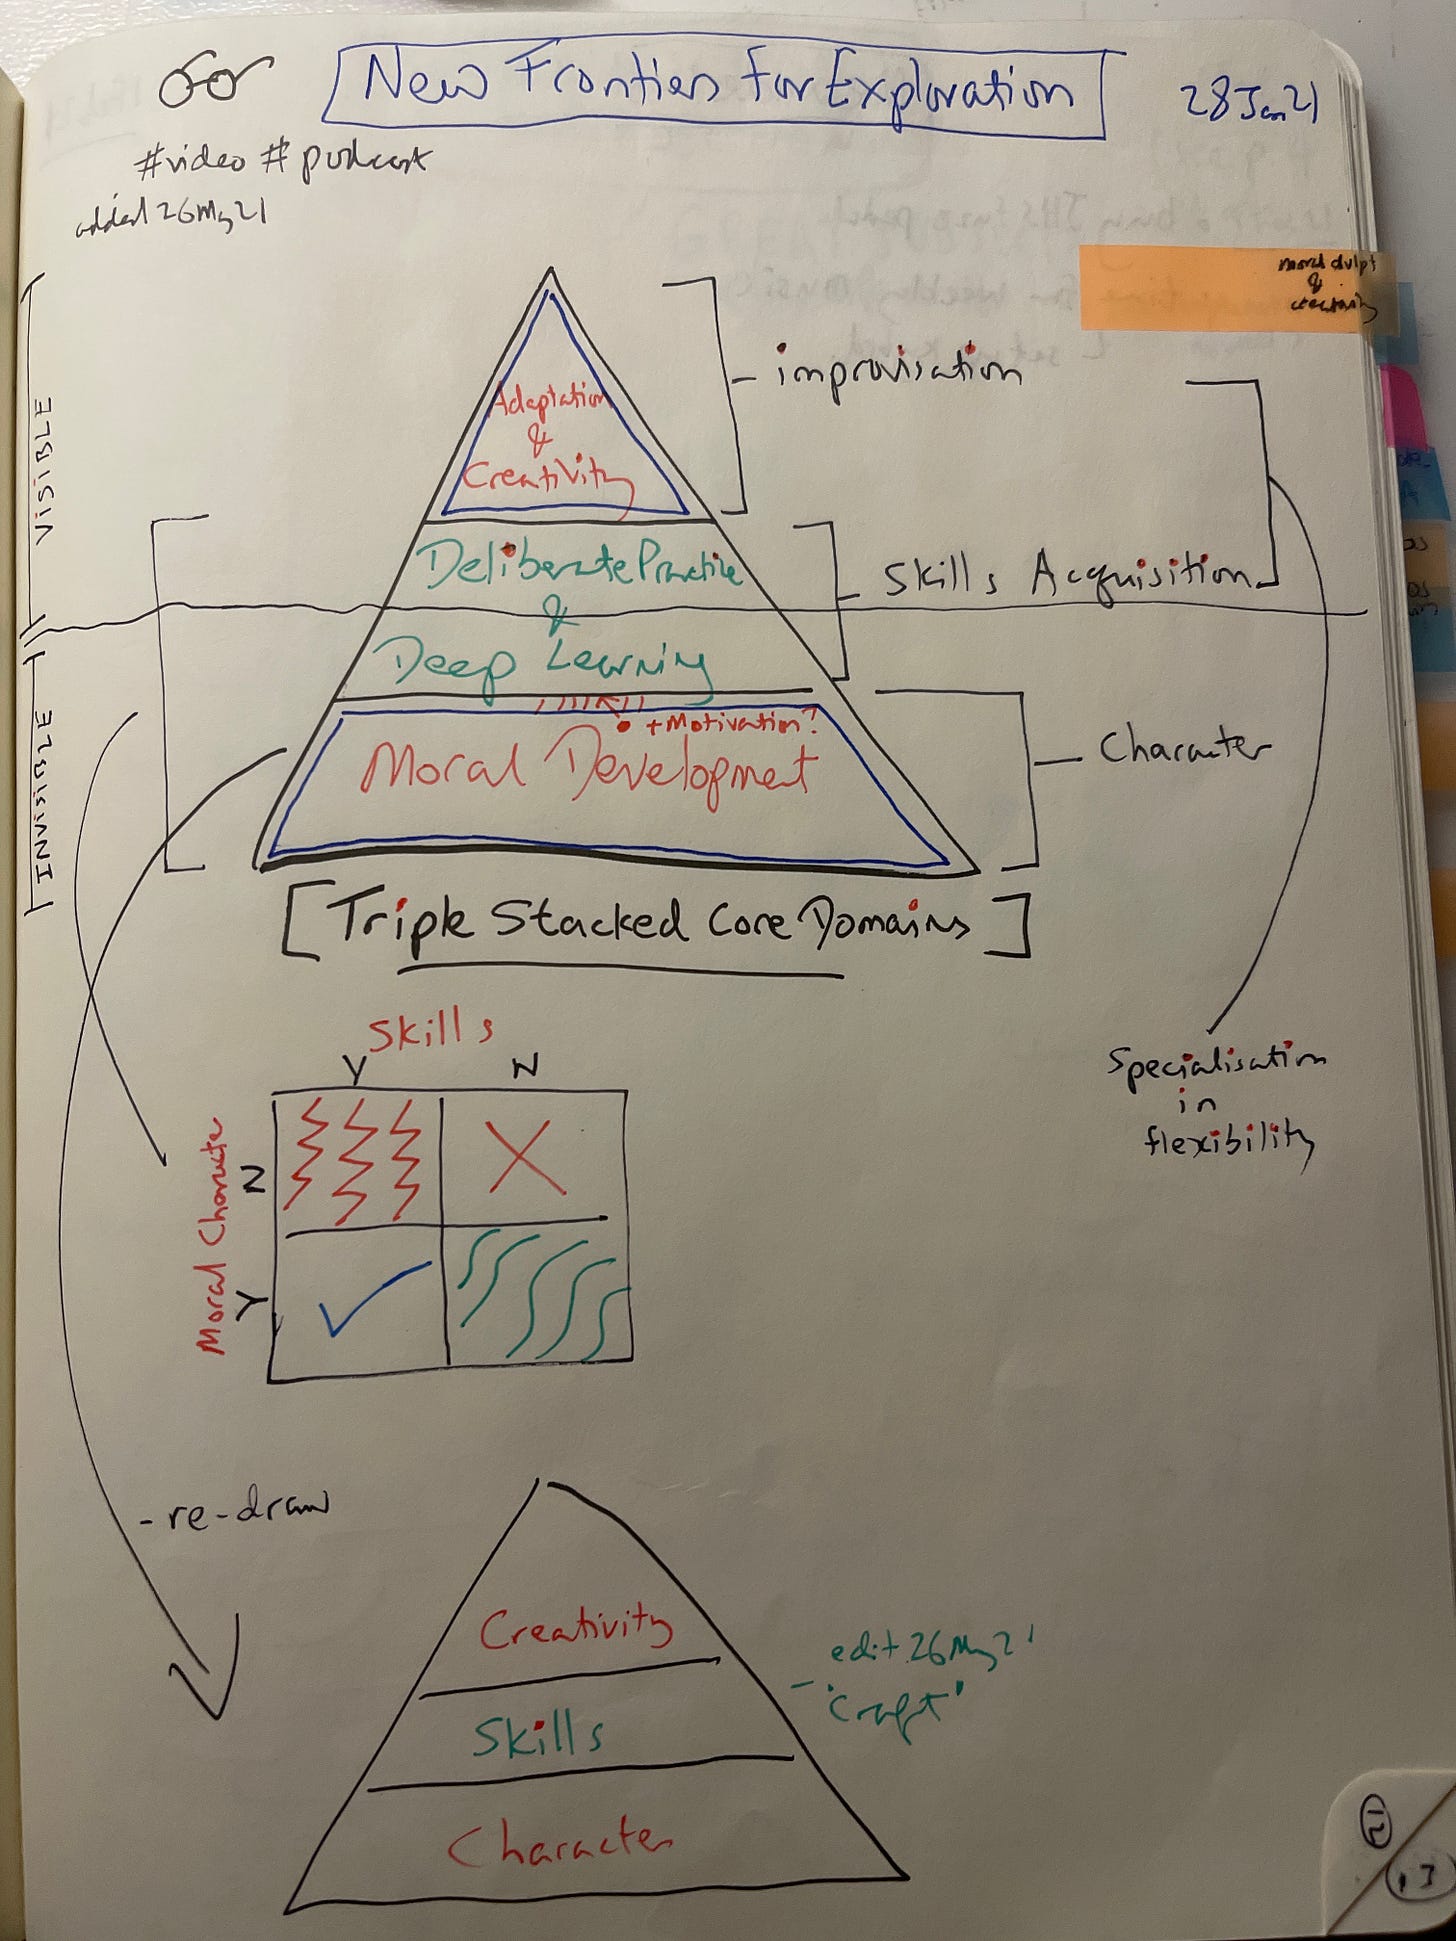 New Frontiers for Exploration
28 Jan 21
#video #podcast
added 26 May 21
moral dvlpt
&
creativity
VISIBLE
INVISIBLE
Adaptation
&
Creativity
improvisation
Deliberate Practice
&
Deep Learning
Skills Acquisition
+ Motivation?
Moral Development
Character
[Triple Stacked Core Domains]
Specialisation
in
flexibility
Skills
Y N
Moral Character
N
Y
- re-draw
Creativity
Skills
Character
edit 26 May 21
- 'Craft'